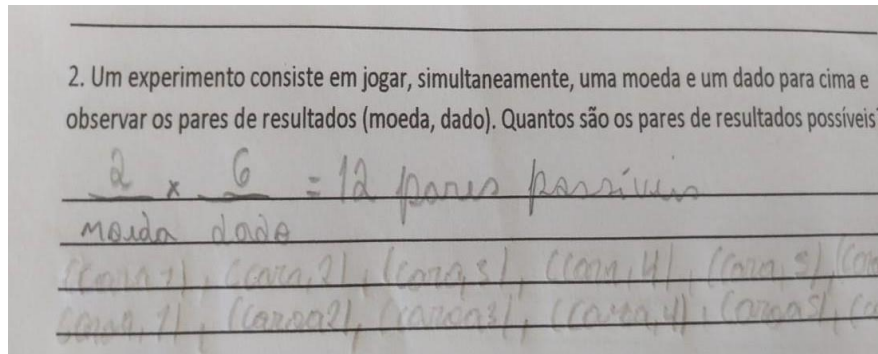 2. Um experimento consiste em jogar, simultaneamente, uma moeda e um dado para cima e
observar os pares de resultados (moeda, dado). Quantos são os pares de resultados possíveis
2 x 6 = 12 pares possíveis
moeda dado
(cara, 1), (cara, 2), (cara, 3), (cara, 4), (cara, 5), (
coroa, 1), (coroa 2), (coroa 3), (coroa, 4), (coroa 5), (